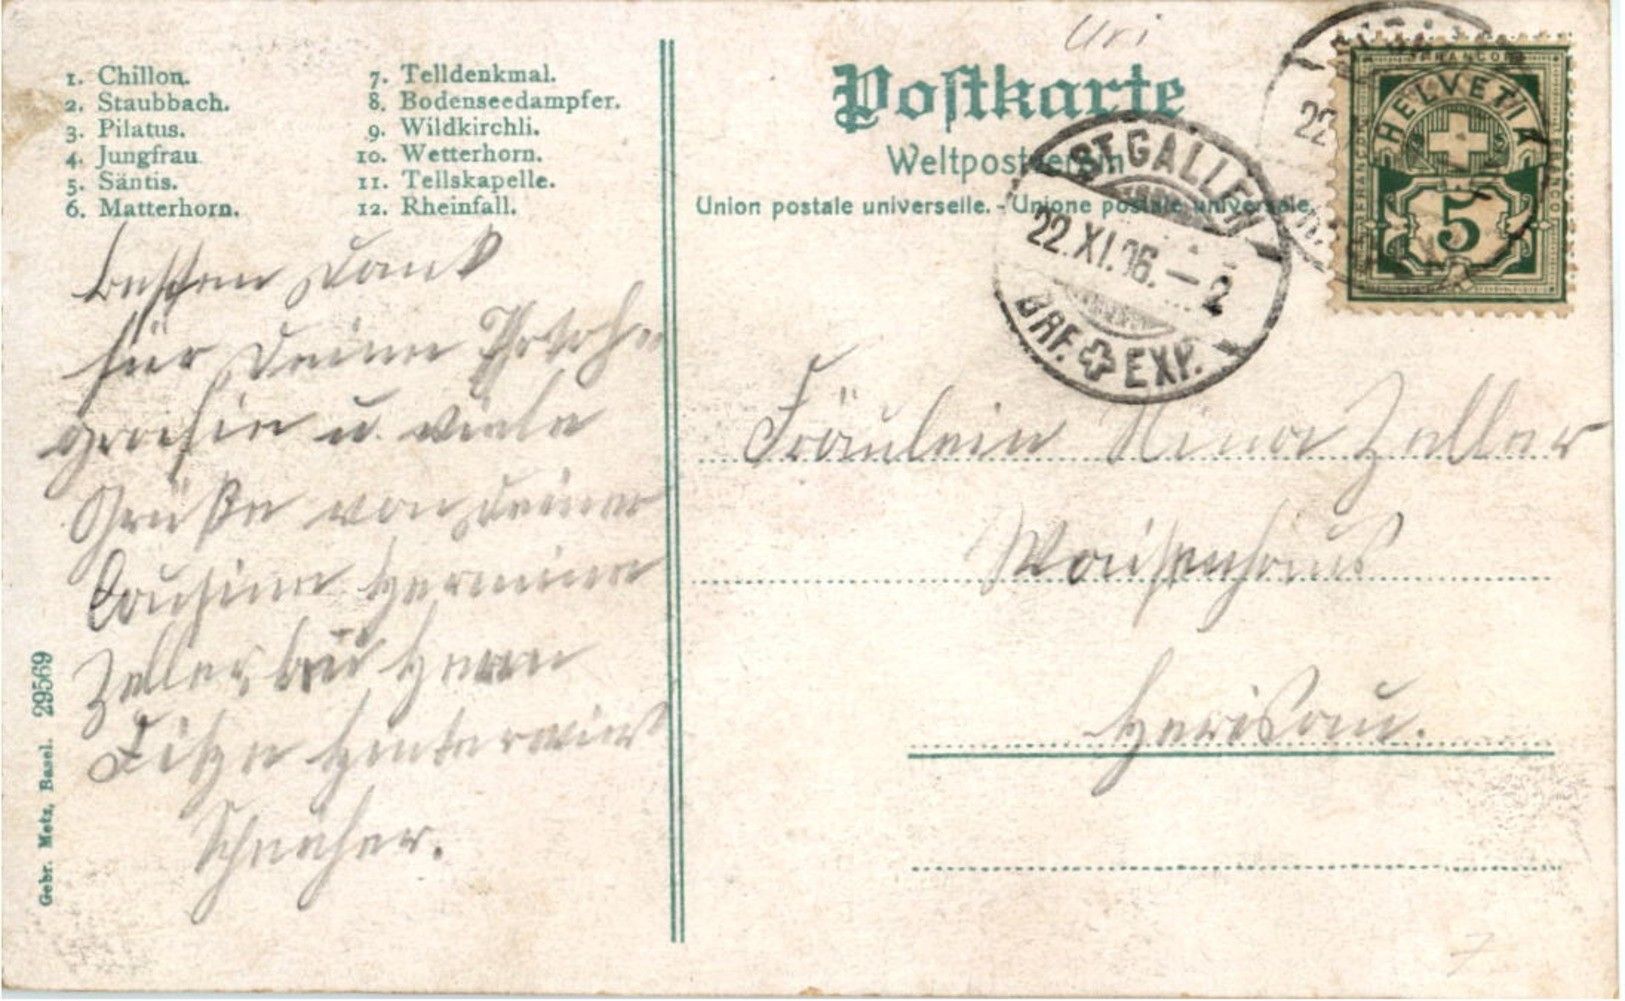 Uri
1. Chillon.
2. Staubbach.
3. Pilatus.
4. Jungfrau
5. Säntis.
6. Matterhorn.
7. Telldenkmal.
8. Bodenseedampfer.
9. Wildkirchli.
10. Wetterhorn.
11. Tellskapelle.
12. Rheinfall.
Postkarte
Weltpostverein
Union postale universelle. - Unione postale universale.
ST. GALLEN
22. XI. 06. - 2
BRF. EXP.
22
FRANCO
HELVETIA
5
FRANCO
FRANCO
Besten Dank
für Deine Photo-
grafie u. viele
Grüße von Deiner
Cousine Hermine
Zeller bei Herrn
Schacher.
Fräulein Nina Zeller
Waisenhaus
Herisau.
Gebr. Metz, Basel. 29569
7